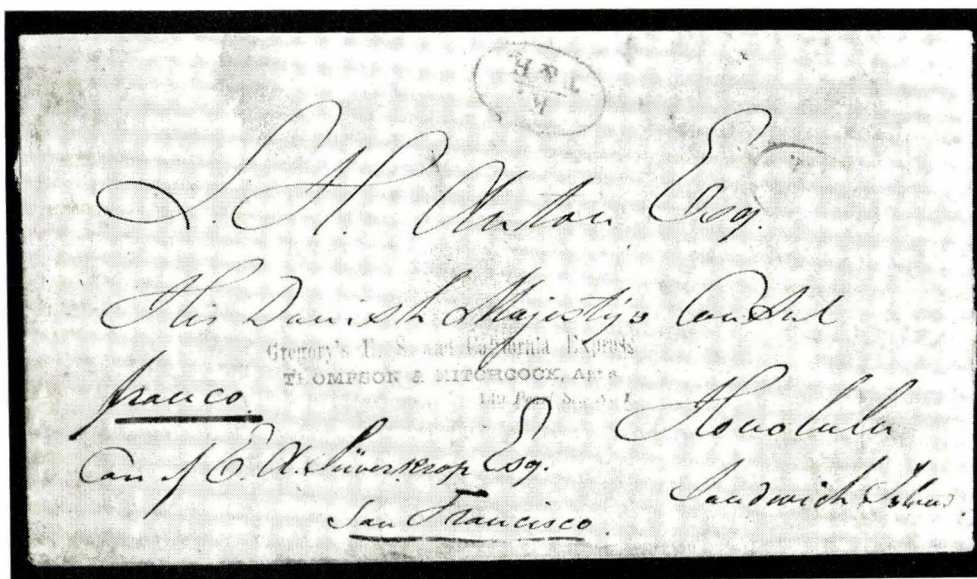 H. Anton Esq.
His Danish Majestys Consul
Gregory's U. S. and California Express
THOMPSON & HITCHCOCK, Agts
149 Pearl St. N. Y.
franco
Honolulu
Care of E. A. Suverkrop Esq.
Sandwich Islands.
San Francisco